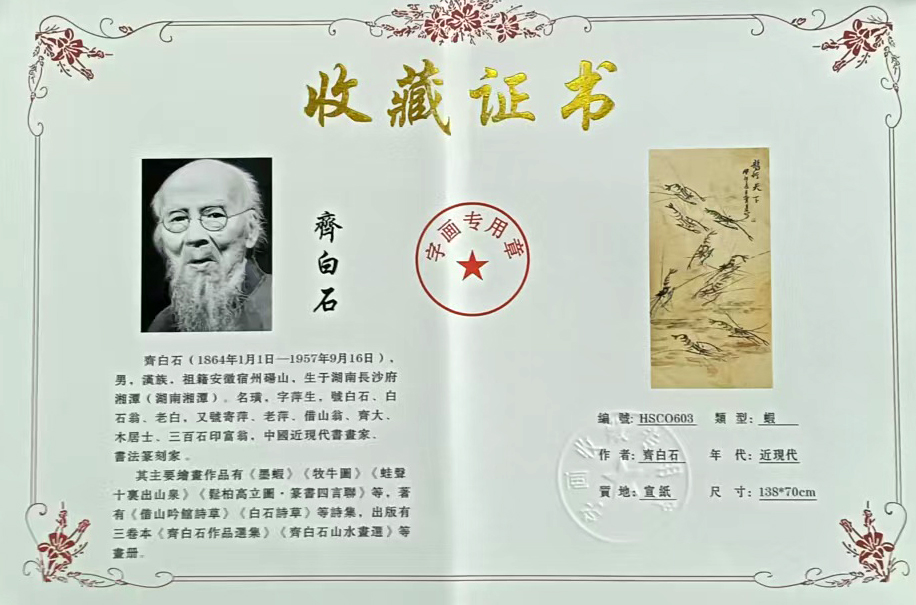 收藏证书
齊白石
字画专用章
齊白石（1864年1月1日—1957年9月16日），
男，漢族，祖籍安徽宿州碭山，生于湖南長沙府
湘潭（湖南湘潭）。名璜，字萍生，號白石、白
石翁、老白，又號寄萍、老萍、借山翁、齊大、
木居士、三百石印富翁，中國近現代書畫家、
書法篆刻家。
其主要繪畫作品有《墨蝦》《牧牛圖》《蛙聲
十裏出山泉》《鬆柏高立圖·篆書四言聯》等，著
有《借山吟館詩草》《白石詩草》等詩集，出版有
三卷本《齊白石作品選集》《齊白石山水畫選》等
畫册。
天下
编 號: HSCO603 類 型: 蝦
作 者: 齊白石 年 代: 近現代
質 地: 宣紙 尺 寸: 138*70cm